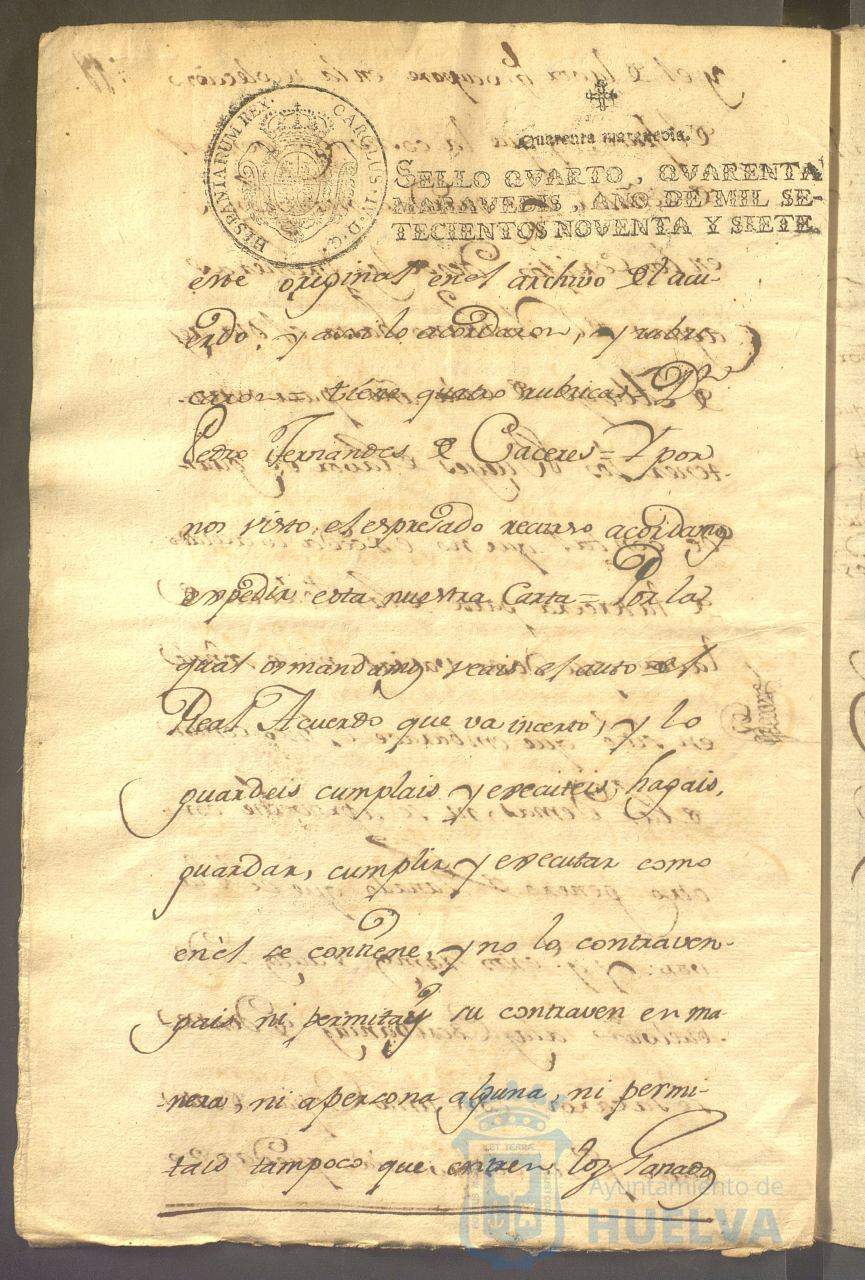 HISPANIARUM REX. CAROLUS · IV · D · G ·
Quarenta maravedis.
SELLO QVARTO, QVARENTA
MARAVEDIS, AÑO DE MIL SE-
TECIENTOS NOVENTA Y SIETE.
este original en el archivo del acu-
erdo. y asi lo acordaron, y rubri
caron = tiene quatro rubricas = Dn
Pedro Fernandes de Caceres = Y por
nos visto, el espresado recurso acordamos
expedir esta nuestra Carta = Por la
qual os mandamos veais el auto del
Real Acuerdo que va incerto, y lo
guardeis cumplais y executeis, hagais,
guardar, cumplir y executar como
en el se contiene, y no lo contraven-
gais ni permitays su contraven en ma-
nera, ni apersona alguna, ni permi-
tais tampoco que entren los Ganados
Ayuntamiento de
HUELVA